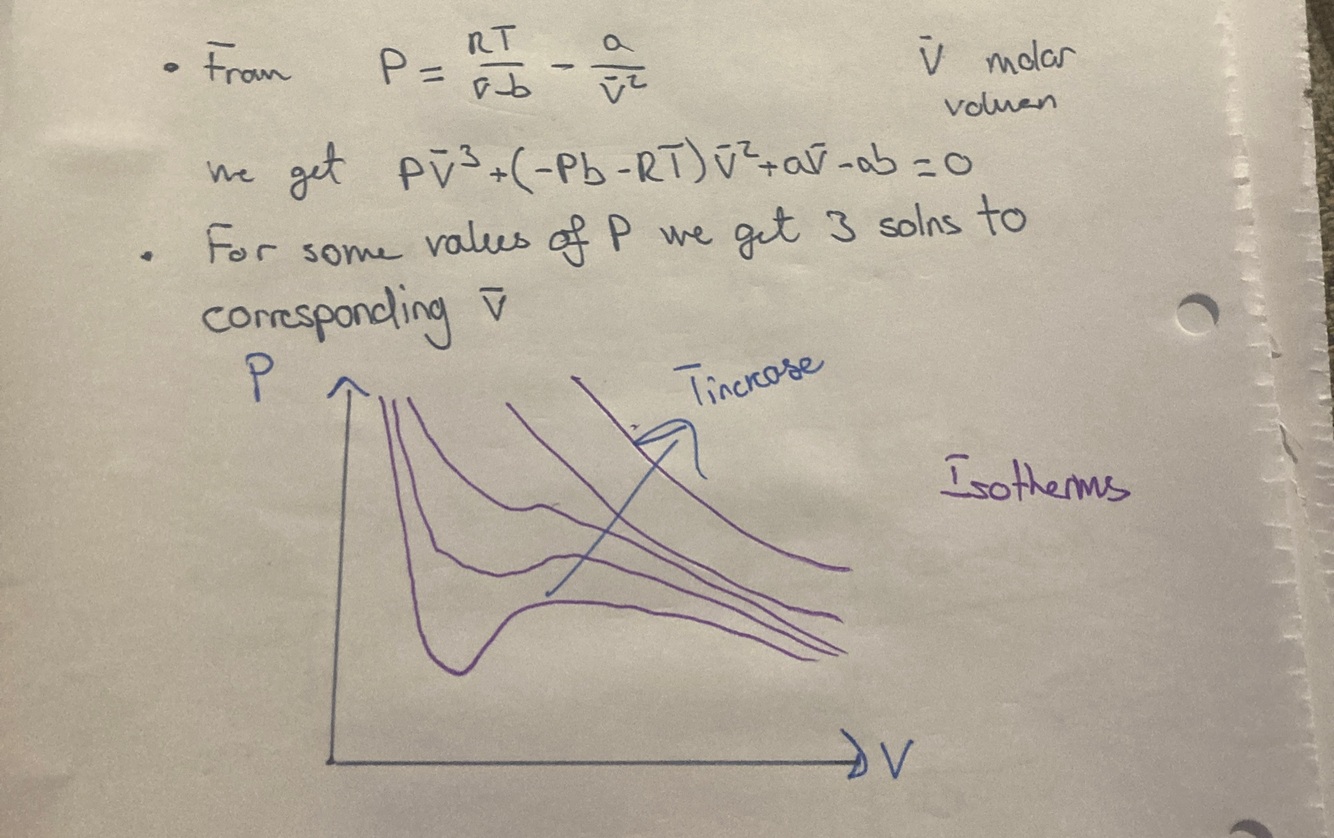 • From P = RT/(v̄-b) - a/v̄² V̄ molar
volumen
we get Pv̄³+(-Pb-RT)v̄²+av̄-ab=0
• For some values of P we get 3 solns to
corresponding v̄
P
T increase
Isotherms
V